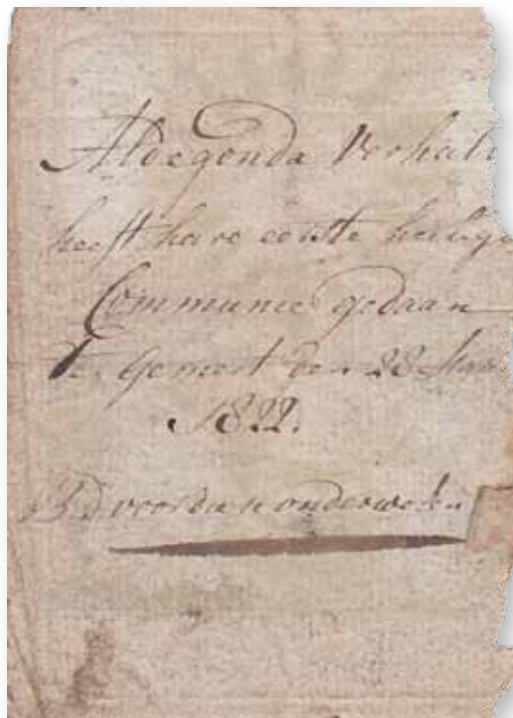 Aldegonda Verhal
heeft hare eerste heilige
Communie gedaan
te Gemert den 28 Maa
1822.